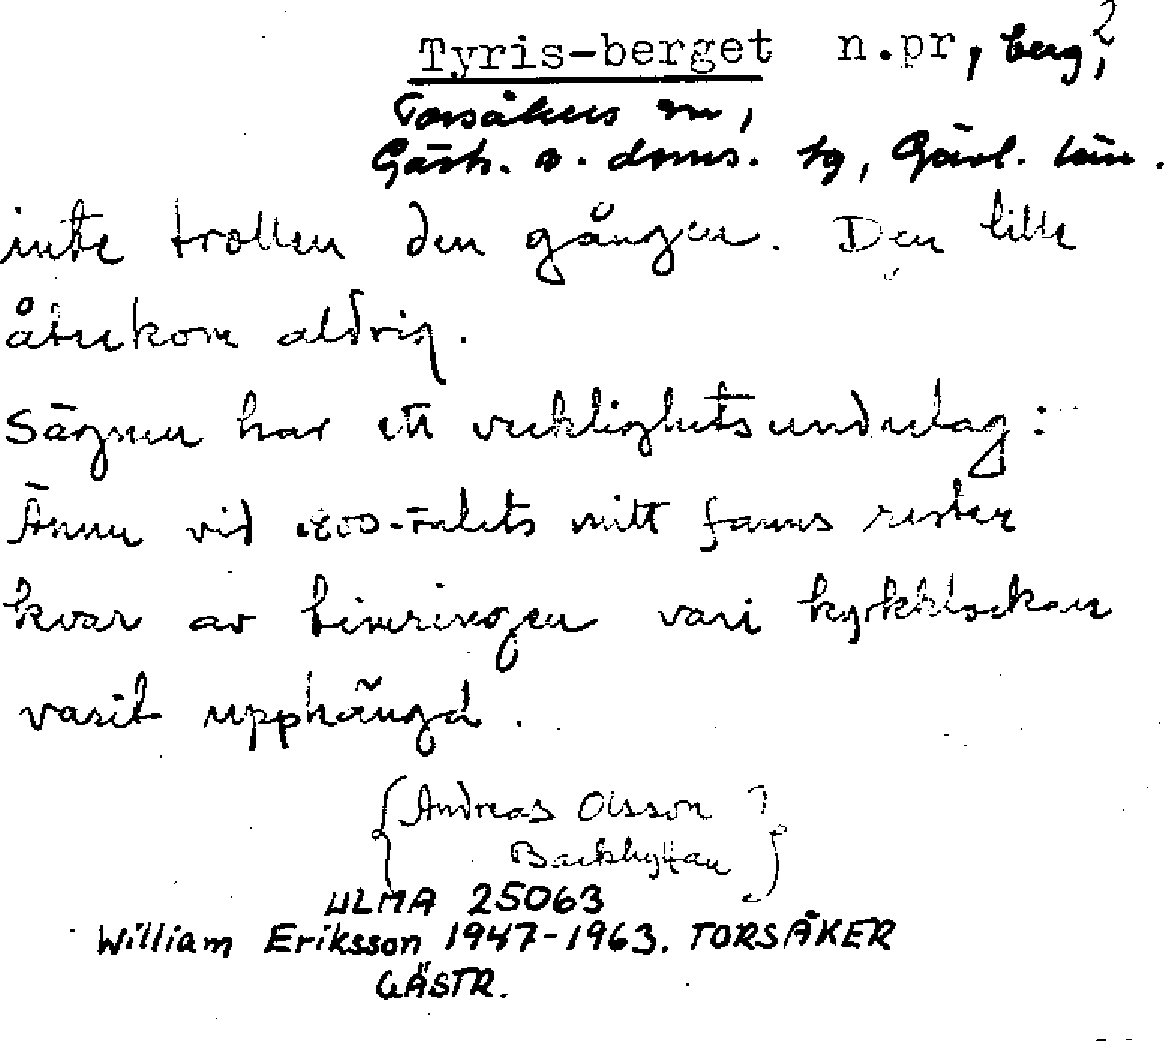 Tyris-berget n.pr, berg,?
Torsåkers sn,
Gästr. ö. doms. tg, Gävl. län.
inte trollen den gången. Den lille
återkom aldrig.
Sägnen har ett verklighetsunderlag:
Ännu vid 1800-talets mitt fanns rester
kvar av timringen vari kyrkklockan
varit upphängd.
{Andreas Olsson
Backhyttan}
ULMA 25063
William Eriksson 1947-1963. TORSÅKER
GÄSTR.